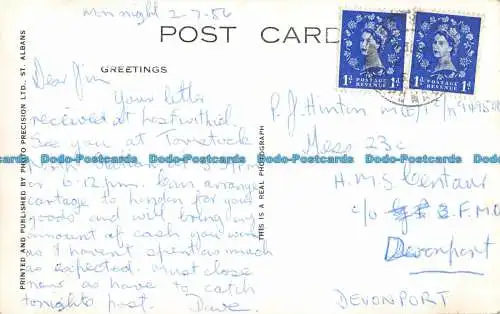 Mon night 2-7-56
POST CARD
GREETINGS
Dear Jim
Your letter
received at Lostwithiel.
See you at Tavistock
or 6-12 p.m. Can arrange
cartage to London for your
goods and will bring my
amount of cash you want
as I haven't spent as much
as expected. Must close
now as have to catch
tonights post. Dave.
PRINTED AND PUBLISHED BY PHOTO PRECISION LTD., ST. ALBANS
THIS IS A REAL PHOTOGRAPH
POSTAGE
REVENUE
1D
1D
POSTAGE
REVENUE
1D
1D
P. J. Hinton
Mess 23c
H.M.S. Centaur
c/o F.M.O
Devonport
DEVONPORT
Dodo-Postcards Dodo-Postcards Dodo-Postcards Dodo-Postcards